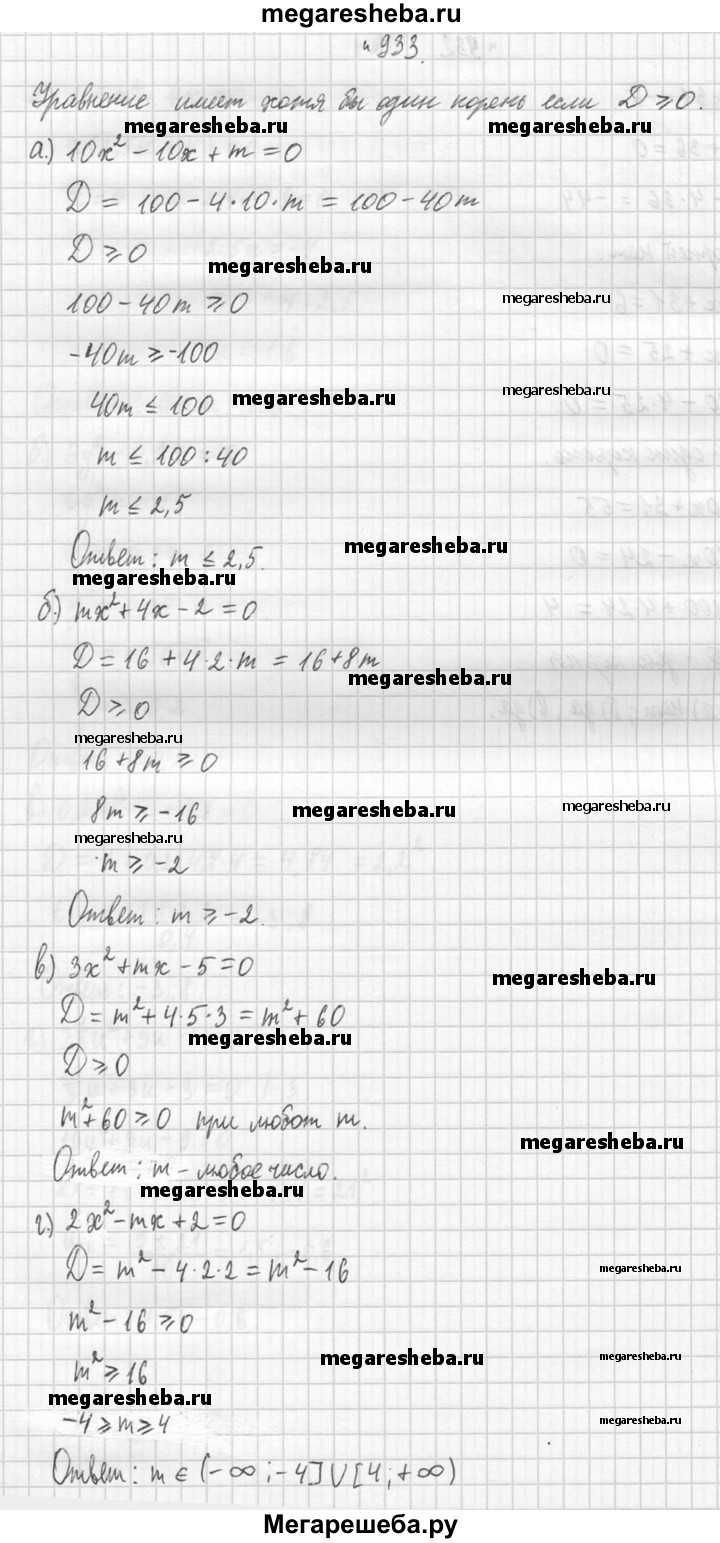 megaresheba.ru
№933.
Уравнение имеет хотя бы один корень если D ⩾ 0.
megaresheba.ru megaresheba.ru
а.) 10x² - 10x + m = 0
D = 100 - 4·10·m = 100 - 40m
D ⩾ 0
megaresheba.ru
100 - 40m ⩾ 0
megaresheba.ru
-40m ⩾ -100
megaresheba.ru
40m ≤ 100
megaresheba.ru
m ≤ 100 : 40
m ≤ 2,5
Ответ: m ≤ 2,5.
megaresheba.ru
megaresheba.ru
б.) mx² + 4x - 2 = 0
D = 16 + 4·2·m = 16 + 8m
megaresheba.ru
D ⩾ 0
megaresheba.ru
16 + 8m ⩾ 0
8m ⩾ -16
megaresheba.ru megaresheba.ru
megaresheba.ru
m ⩾ -2
Ответ: m ⩾ -2.
в) 3x² + mx - 5 = 0
megaresheba.ru
D = m² + 4·5·3 = m² + 60
megaresheba.ru
D ⩾ 0
m² + 60 ⩾ 0 при любом m.
megaresheba.ru
Ответ: m - любое число.
megaresheba.ru
г.) 2x² - mx + 2 = 0
D = m² - 4·2·2 = m² - 16
megaresheba.ru
m² - 16 ⩾ 0
megaresheba.ru megaresheba.ru
m² ⩾ 16
megaresheba.ru
-4 ⩾ m ⩾ 4
megaresheba.ru
Ответ: m ∈ (-∞; -4] ∪ [4; +∞)
Мегарешеба.ру